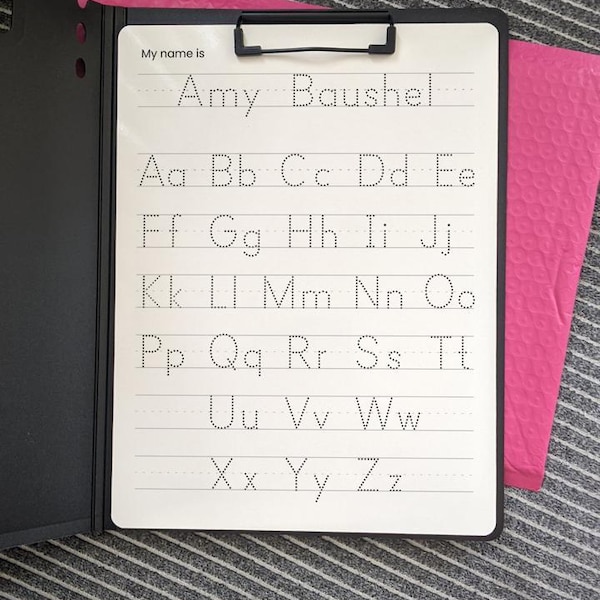 My name is
Amy Baushel
Aa Bb Cc Dd Ee
Ff Gg Hh Ii Jj
Kk Ll Mm Nn Oo
Pp Qq Rr Ss Tt
Uu Vv Ww
Xx Yy Zz